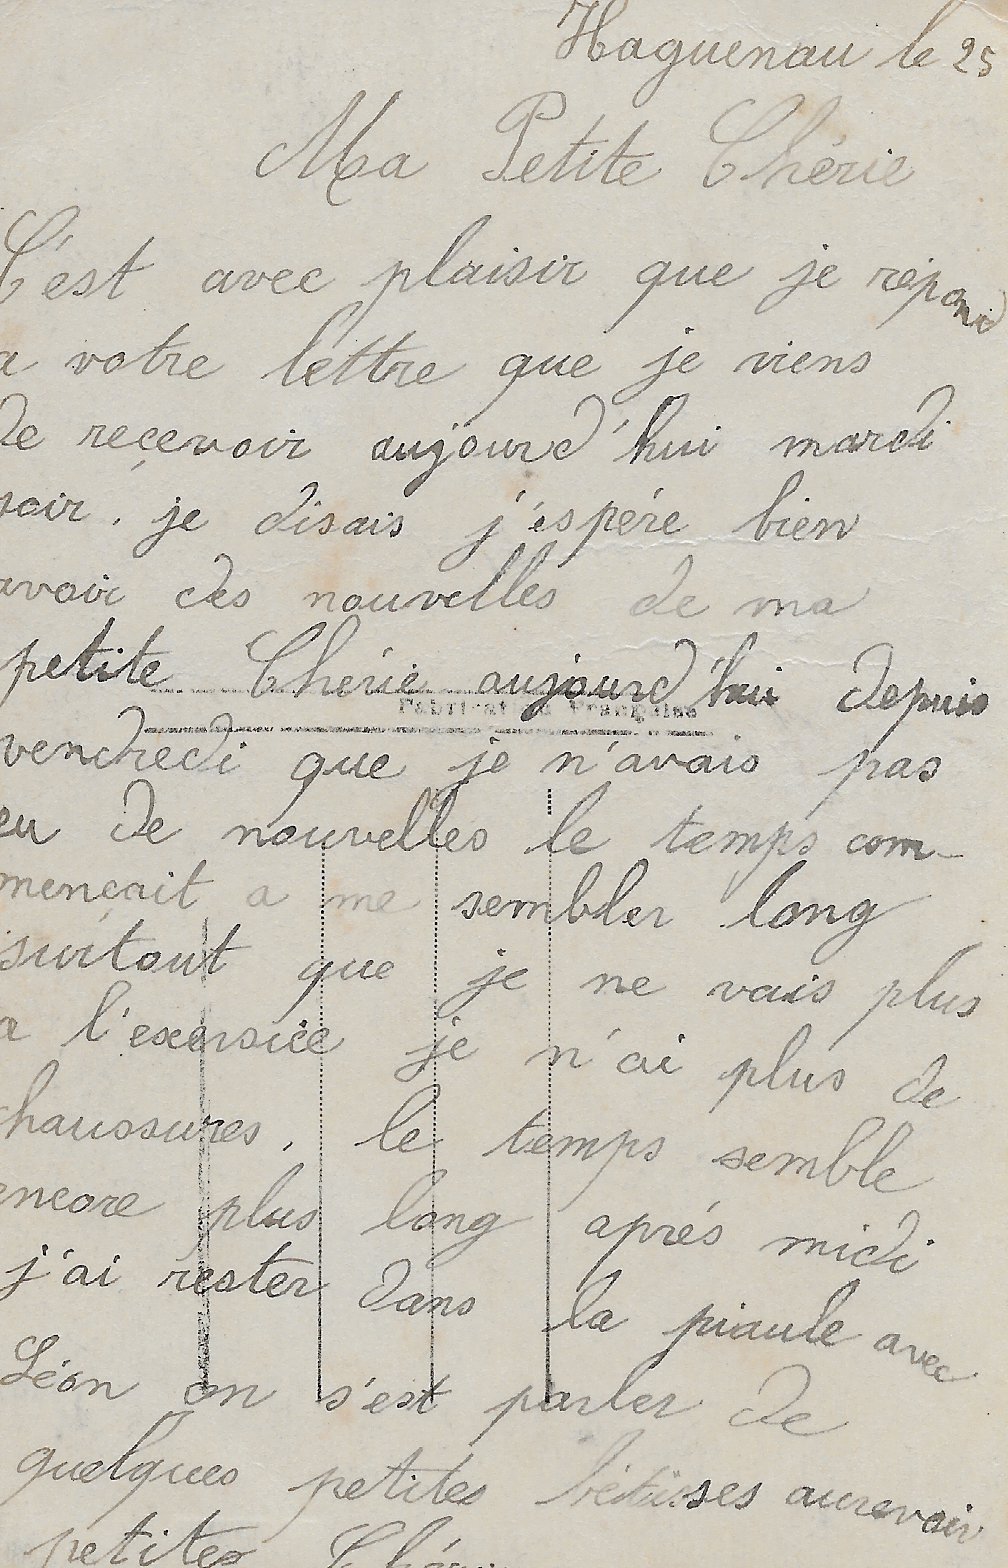 Haguenau le 25
Ma Petite Chérie
C'est avec plaisir que je répond
a votre lettre que je viens
de reçevoir aujourd'hui mardi
soir. je disais j'éspére bien
avoir des nouvelles de ma
petite Chérie aujourd'hui depuis
Fabrication Française
vendredi que je n'avais pas
eu de nouvelles le temps com-
mençait a me sembler long
surtout que je ne vais plus
a l'exersice je n'ai plus de
chaussures, le temps semble
encore plus long aprés midi
j'ai rester dans la piaule avec
Léon on s'est parler de
quelques petites bétises aurevoir
petites Chérie